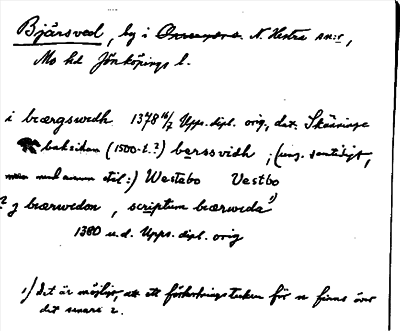 Bjärsved, by i N. Hestra sn:r,
Mo hd Jönköpings l.
i bærgswedh 1378 16/2 Upps. dipl. orig., dat. Skäninge
baksidan (1500-t.?) berssvidh ; (ung. samtidigt,
men med annan stil:) Westebo Vestbo
? j bærwedon , scriptum bærweda 1)
1380 u.d. Upps. dipl. orig
1) Det är möjligt, att ett förkortningstecken för n finns över
det senare a.